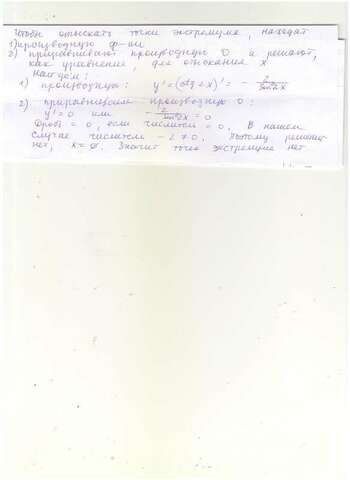 Чтобы отыскать точки экстремума, находят
1) производную ф-ии
2) приравнивают производную 0 и решают,
как уравнение, для отыскания x
Найдём:
1) производную: y' = (ctg 2x)' = - 2/sin²2x
2) приравниваем производную 0:
y' = 0 или - 2/sin²2x = 0
Дробь = 0, если числитель = 0. В нашем
случае числитель -2 ≠ 0. Поэтому решений
нет, x = ∅. Значит точек экстремума нет.